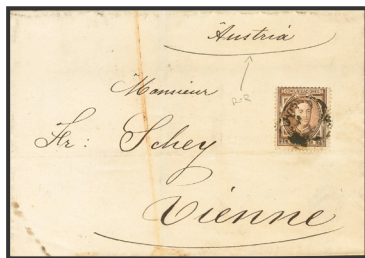 Austria
Monsieur
Fr: Schey
Vienne